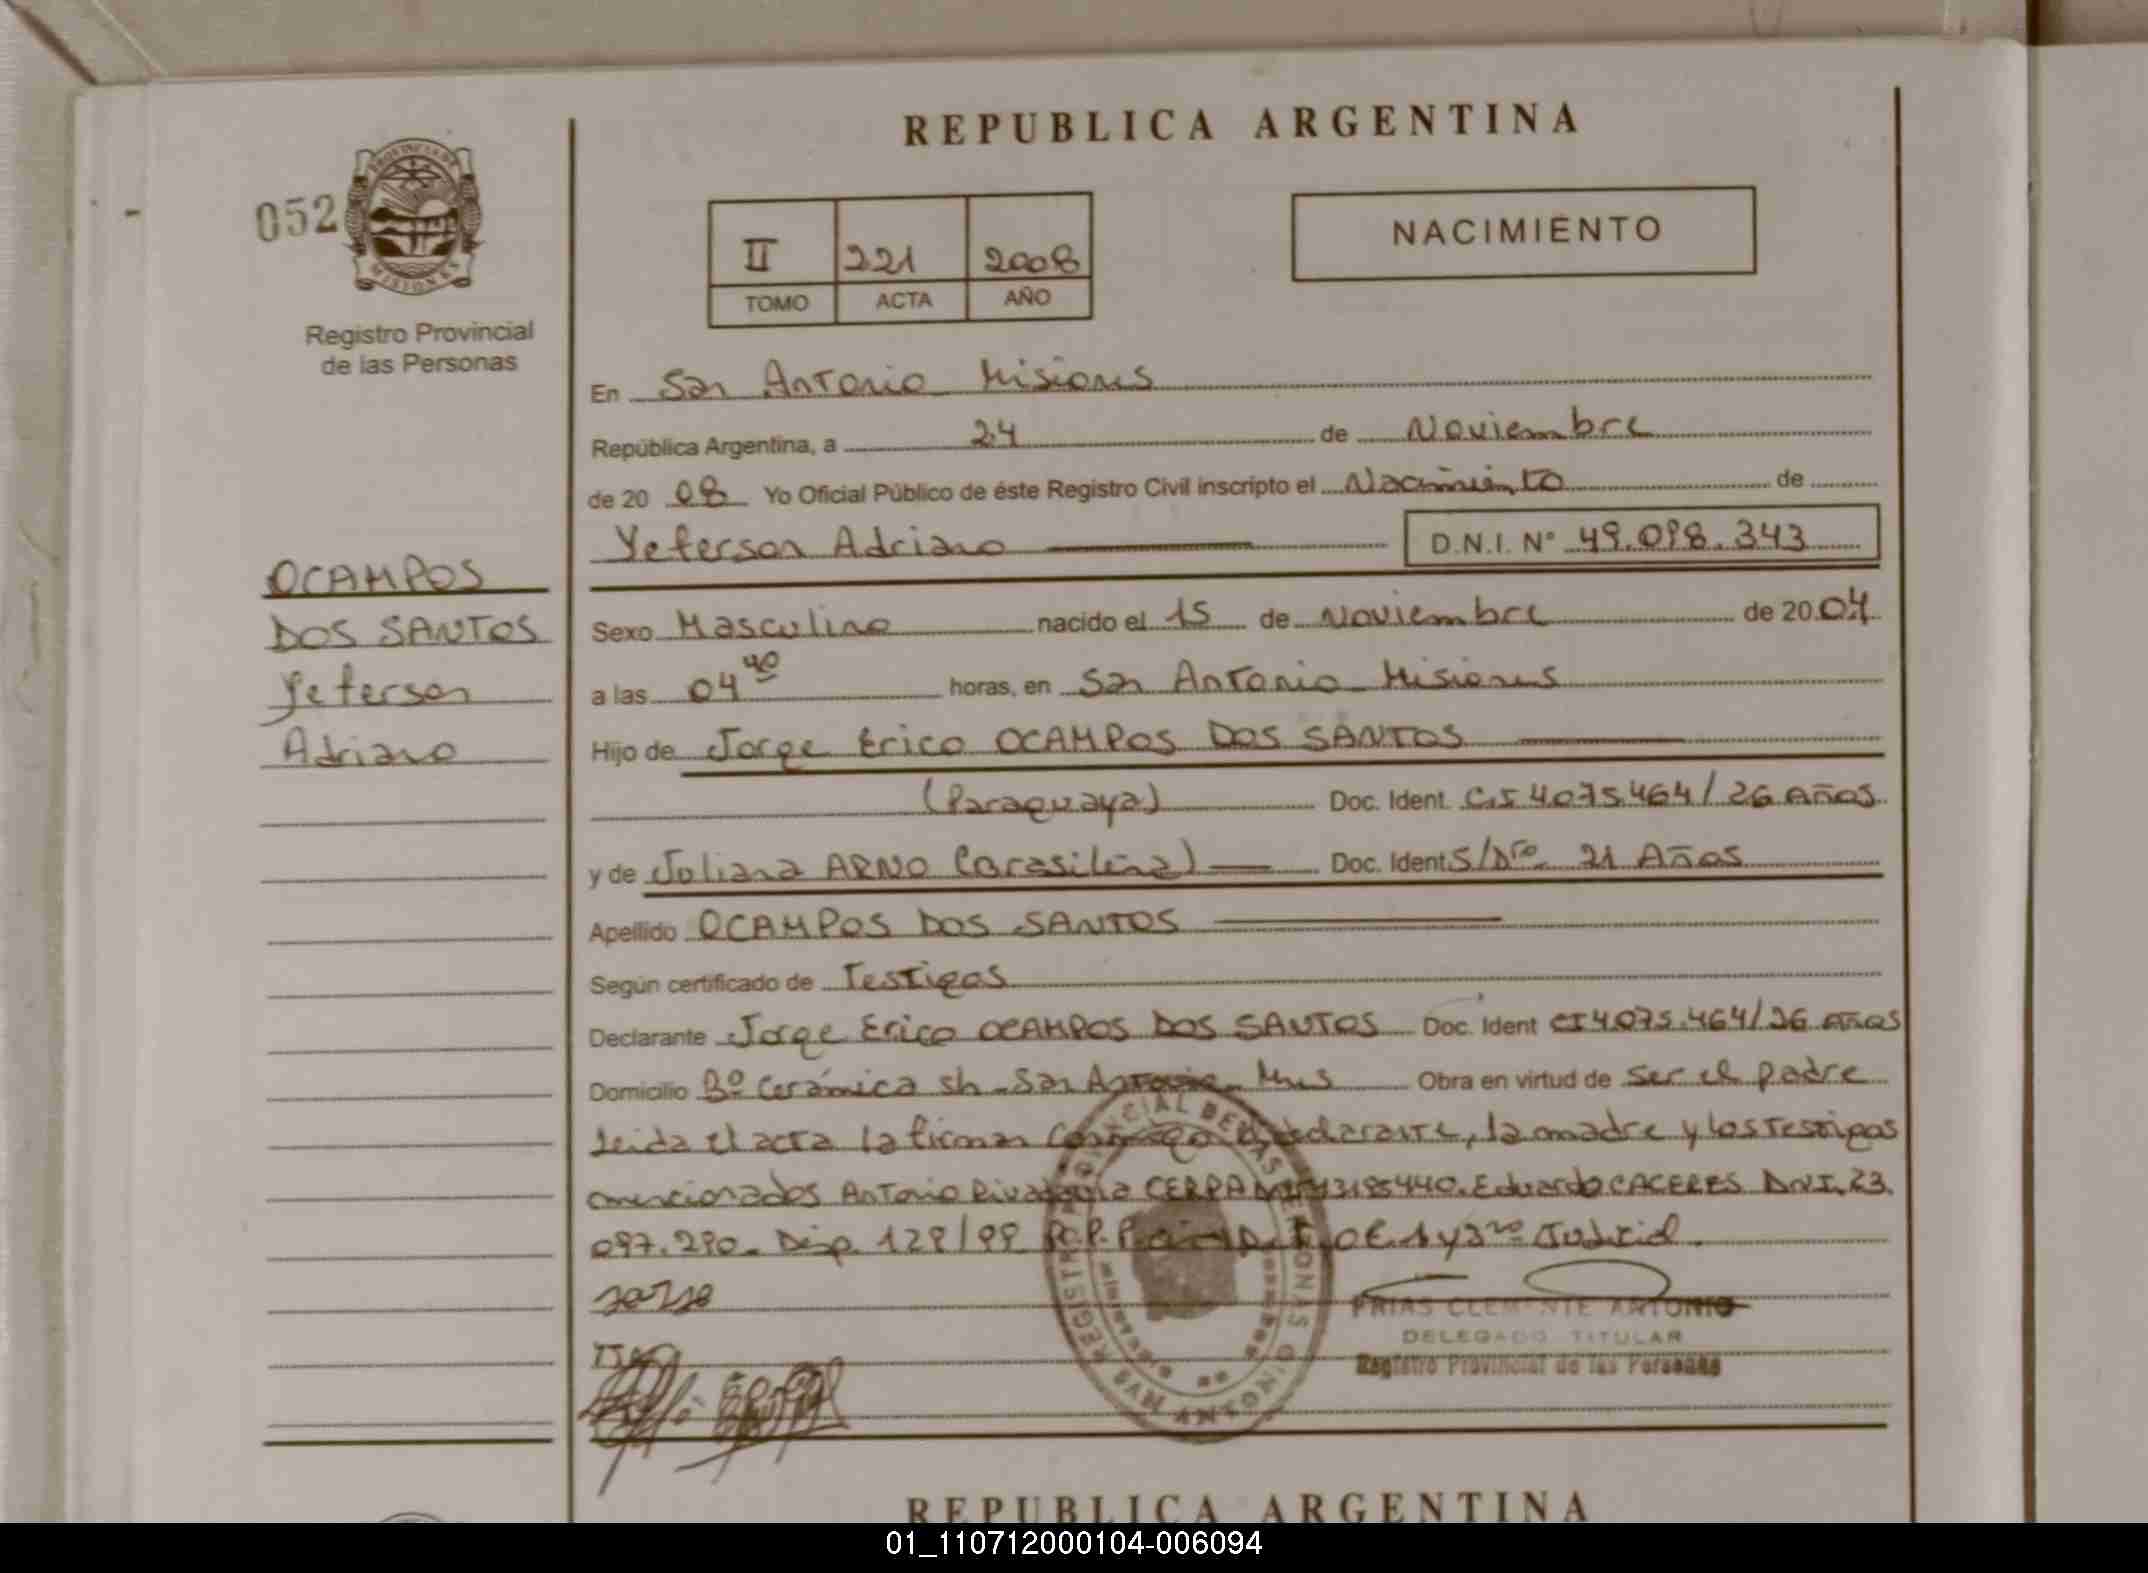 REPUBLICA ARGENTINA
052
PROVINCIA DE
MISIONES
Registro Provincial
de las Personas
II 221 2008
TOMO ACTA AÑO
NACIMIENTO
En San Antonio Misiones
República Argentina, a 24 de Noviembre
de 20 08 Yo Oficial Público de éste Registro Civil inscripto el Nacimiento de
Yeferson Adriano D.N.I. N° 49.098.343
OCAMPOS
DOS SANTOS
Yeferson
Adriano
Sexo Masculino nacido el 15 de Noviembre de 20 04
a las 04 40 horas, en San Antonio Misiones
Hijo de Jorge Erico OCAMPOS DOS SANTOS
(Paraguaya) Doc. Ident. C.I 4.075.464/26 AÑOS
y de Juliana ARNO (brasileña) Doc. Ident S/Dto 21 AÑOS
Apellido OCAMPOS DOS SANTOS
Según certificado de Testigos
Declarante Jorge Erico OCAMPOS DOS SANTOS Doc. Ident CI 4.075.464/26 AÑOS
Domicilio Bº Cerámica sn - San Antonio Mnes Obra en virtud de ser el padre
Leida el acta la firman conmigo el declarante, la madre y los testigos
mencionados Antonio CERPA 13185440. Eduardo CACERES D.N.I. 23.
097.290. Disp. 129/99 R.P.P.
FRIAS CLEMENTE ANTONIO
DELEGADO TITULAR
Registro Provincial de las Personas
REPUBLICA ARGENTINA
01_110712000104-006094